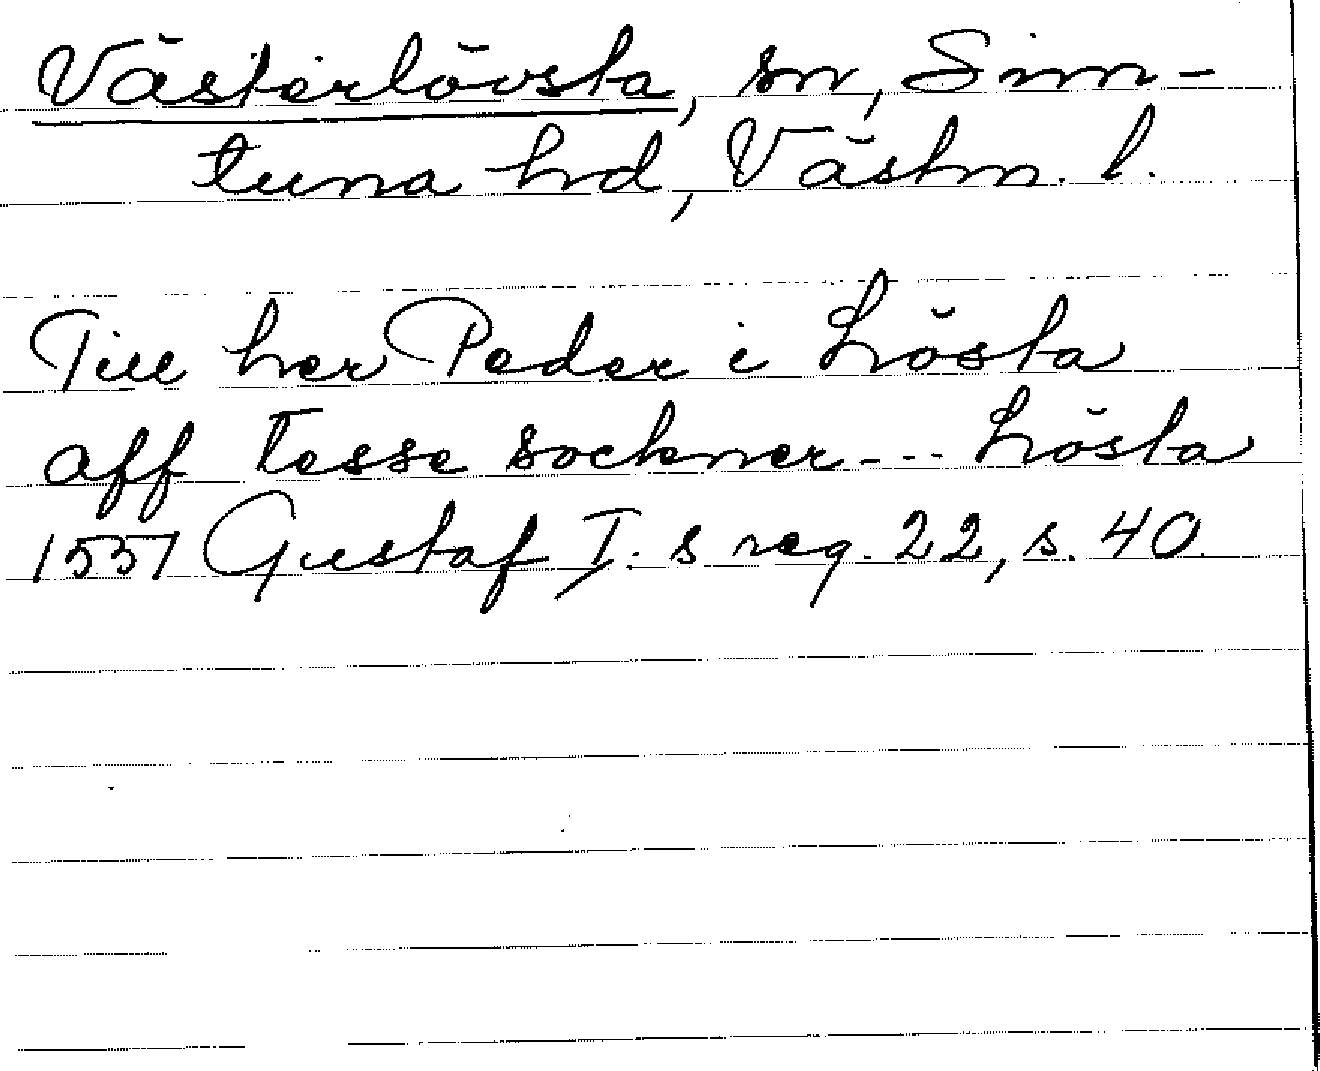 Västerlövsta, sn, Sim-
tuna hrd, Västm. l.
Till her Peder i Lösta
aff tesse sockner --- Lösta
1551 Gustaf I:s reg. 22, s. 40.